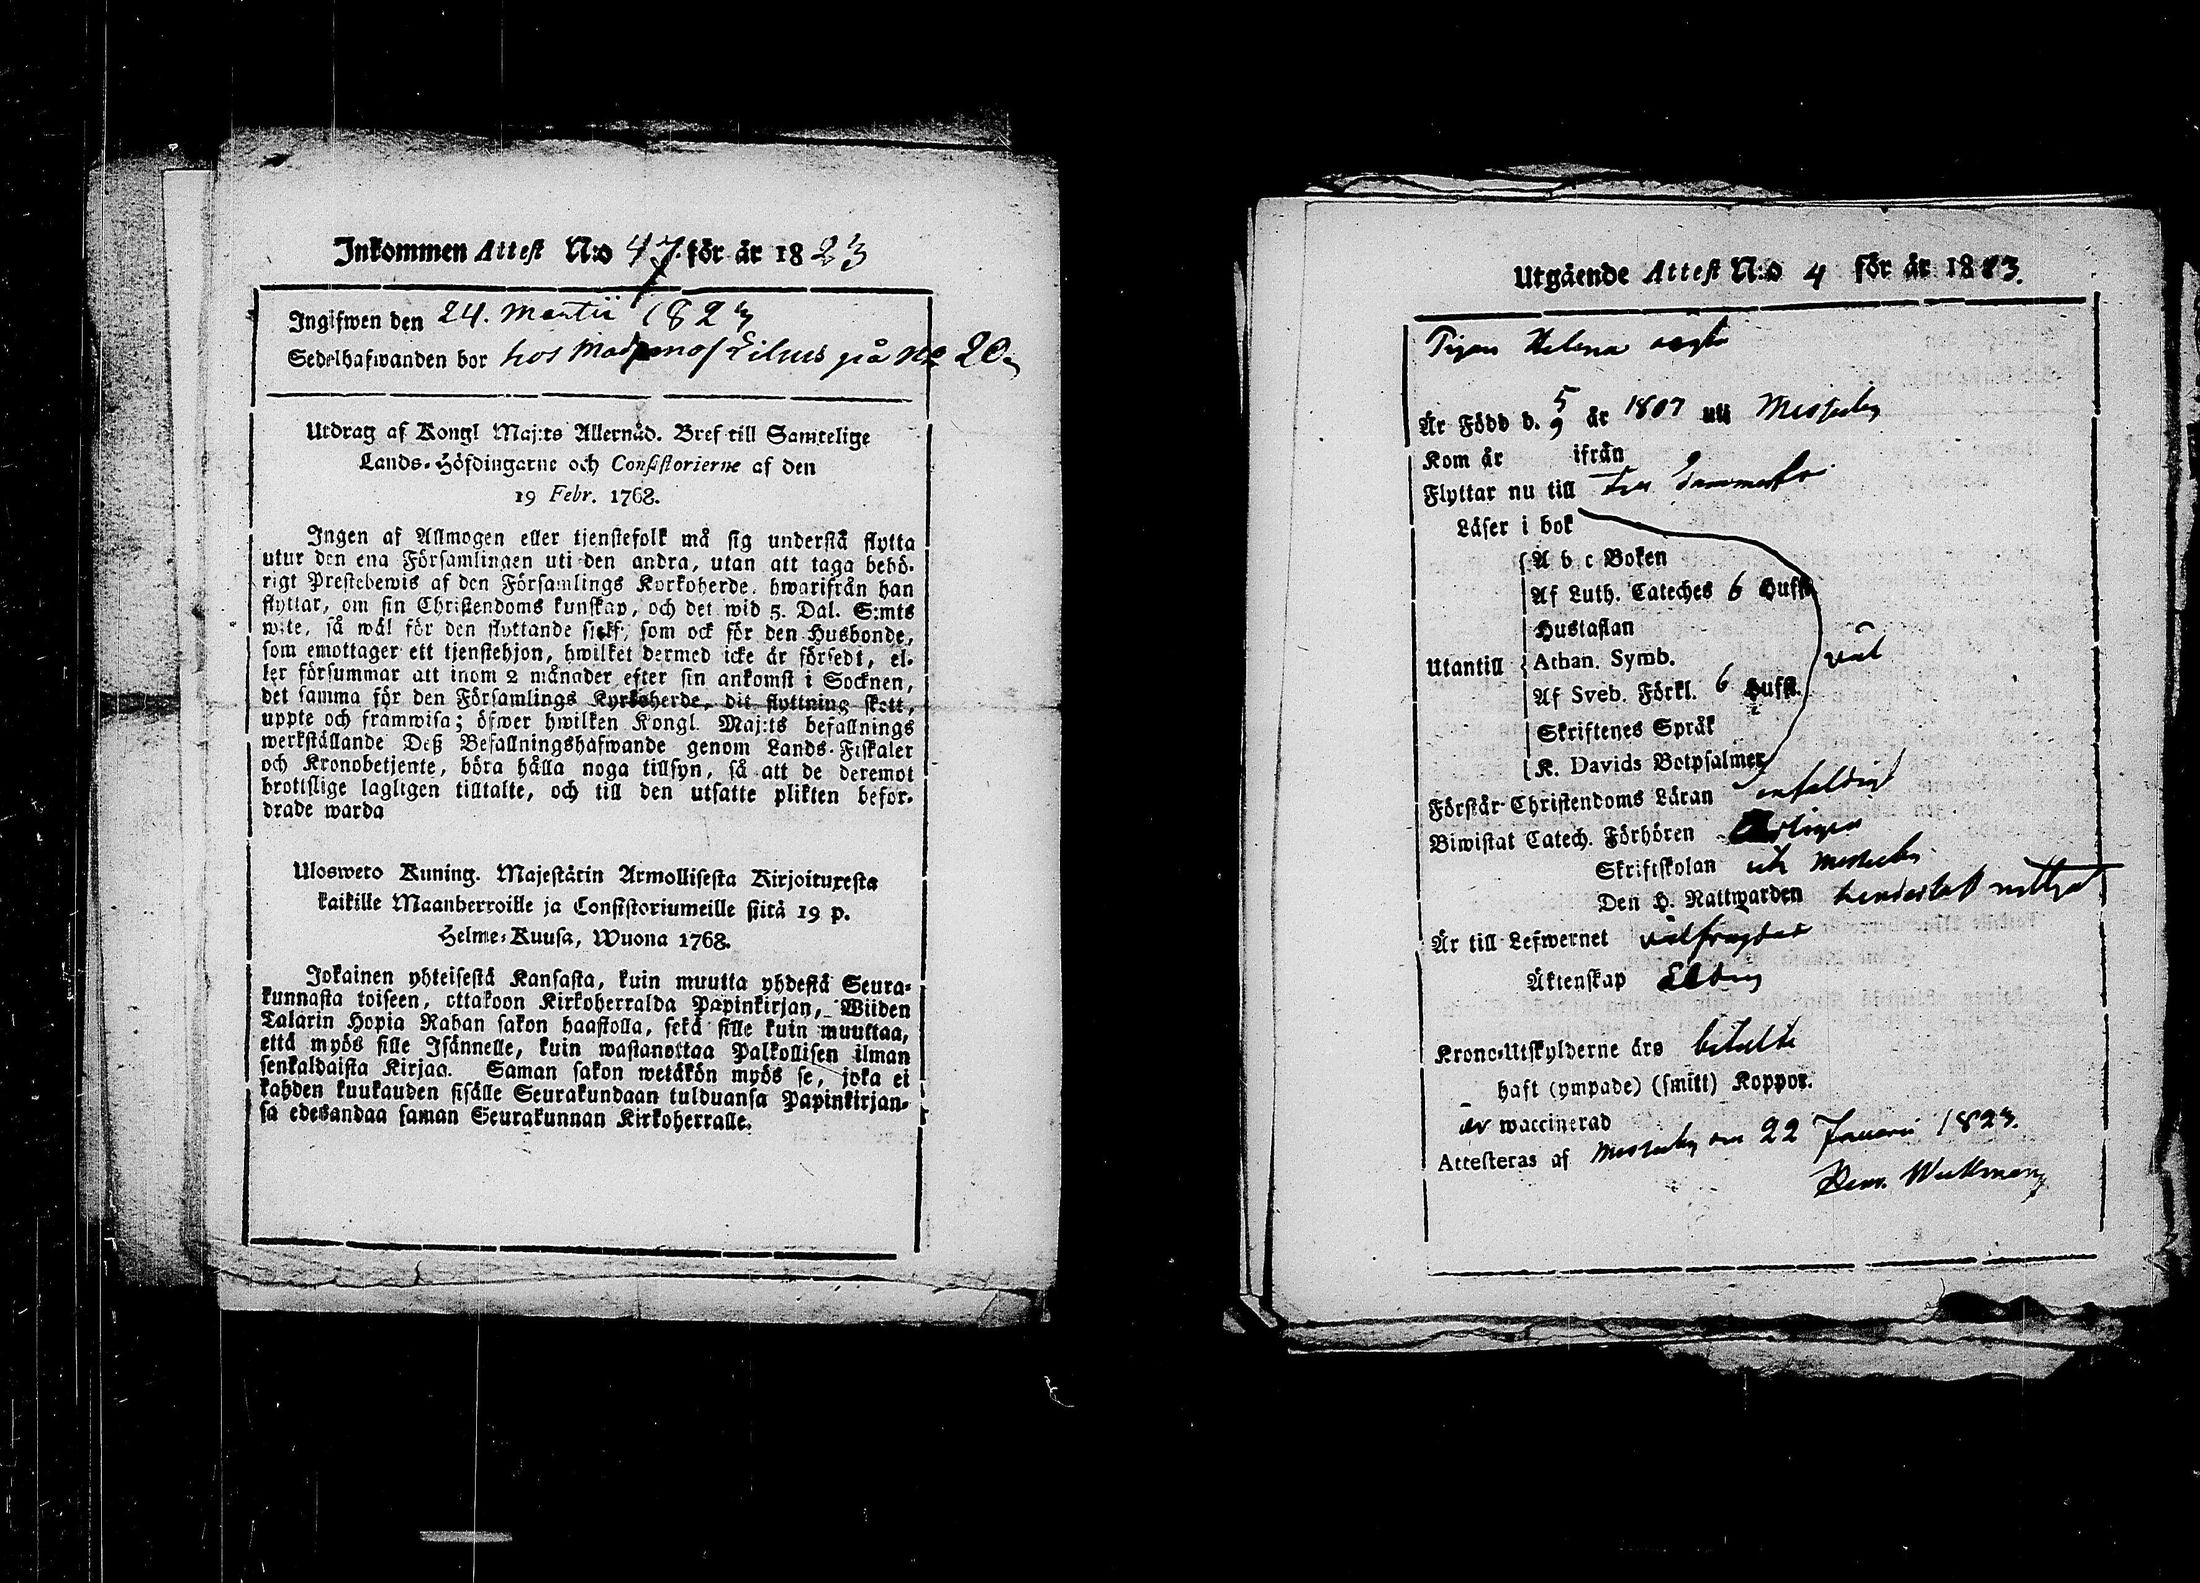 Inkommen Attest N:o 47. för år 1823
Ingifwen den 24. Martii 1823
Sedelhafwanden bor hos på No 20.
Utdrag af Kongl Maj:ts Allernåd. Bref till Samtelige
Lands-Höfdingarne och Consistorierne af den
19 Febr. 1768.
Ingen af Allmogen eller tjenstefolk må sig understå flytta
utur den ena Församlingen uti den andra, utan att taga behö-
rigt Prestebewis af den Församlings Kyrkoherde, hwarifrån han
flyttar, om sin Christendoms kunskap, och det wid 5. Dal. S:mts
wite, så wäl för den flyttande sielf, som ock för den Husbonde,
som emottager ett tjenstehjon, hwilket dermed icke är försedt, el-
ler försummar att inom 2 månader efter sin ankomst i Socknen,
det samma för den Församlings Kyrkoherde, dit flyttning skett,
uppte och framwisa; öfwer hwilken Kongl. Maj:ts befallnings
werkställande Deß Befallningshafwande genom Lands-Fiskaler
och Kronobetjente, böra hålla noga tillsyn, så att de deremot
brottslige lagligen tilltalte, och till den utsatte plikten befor-
drade warda
Ulosweto Kuning. Majestätin Armollisesta Kirjoituxesta
kaikille Maanherroille ja Consistoriumeille siitä 19 p.
Helme-Kuusa, Wuona 1768.
Jokainen yhteisestä Kansasta, kuin muutta yhdestä Seura-
kunnasta toiseen, ottakoon Kirkoherralda Papinkirjan, Wiiden
Talarin Hopia Rahan sakon haastolla, sekä sille kuin muuttaa,
että myös sille Isännelle, kuin wastanottaa Palkollisen ilman
senkaldaista Kirjaa. Saman sakon wetäkön myös se, joka ei
kahden kuukauden sisälle Seurakundaan tulduansa Papinkirjan-
sa edesandaa saman Seurakunnan Kirkoherralle.
Utgående Attest N:o 4 för år 1823.
Pigan Helena
Är Född d. 5/9 år 1807 uti Messuby
Kom år ifrån
Flyttar nu till
Läser i bok
A b c Boken
Af Luth. Cateches 6 Hufst.
Hustaflan
Utantill Athan. Symb. väl
Af Sveb. Förkl. 6 Hufst.
Skriftenes Språk
K. Davids Botpsalmer
Förstår Christendoms Läran enfaldigt
Biwistat Catech. Förhören
Skriftskolan uti Messuby
Den H. Nattwarden
Är till Lefwernet välfrägdad
Äktenskap Ledig
Krono-Utskylderne äro betalte
haft (ympade) (smitt) Koppor.
är waccinerad
Attesteras af Messuby den 22 Januarii 1823.